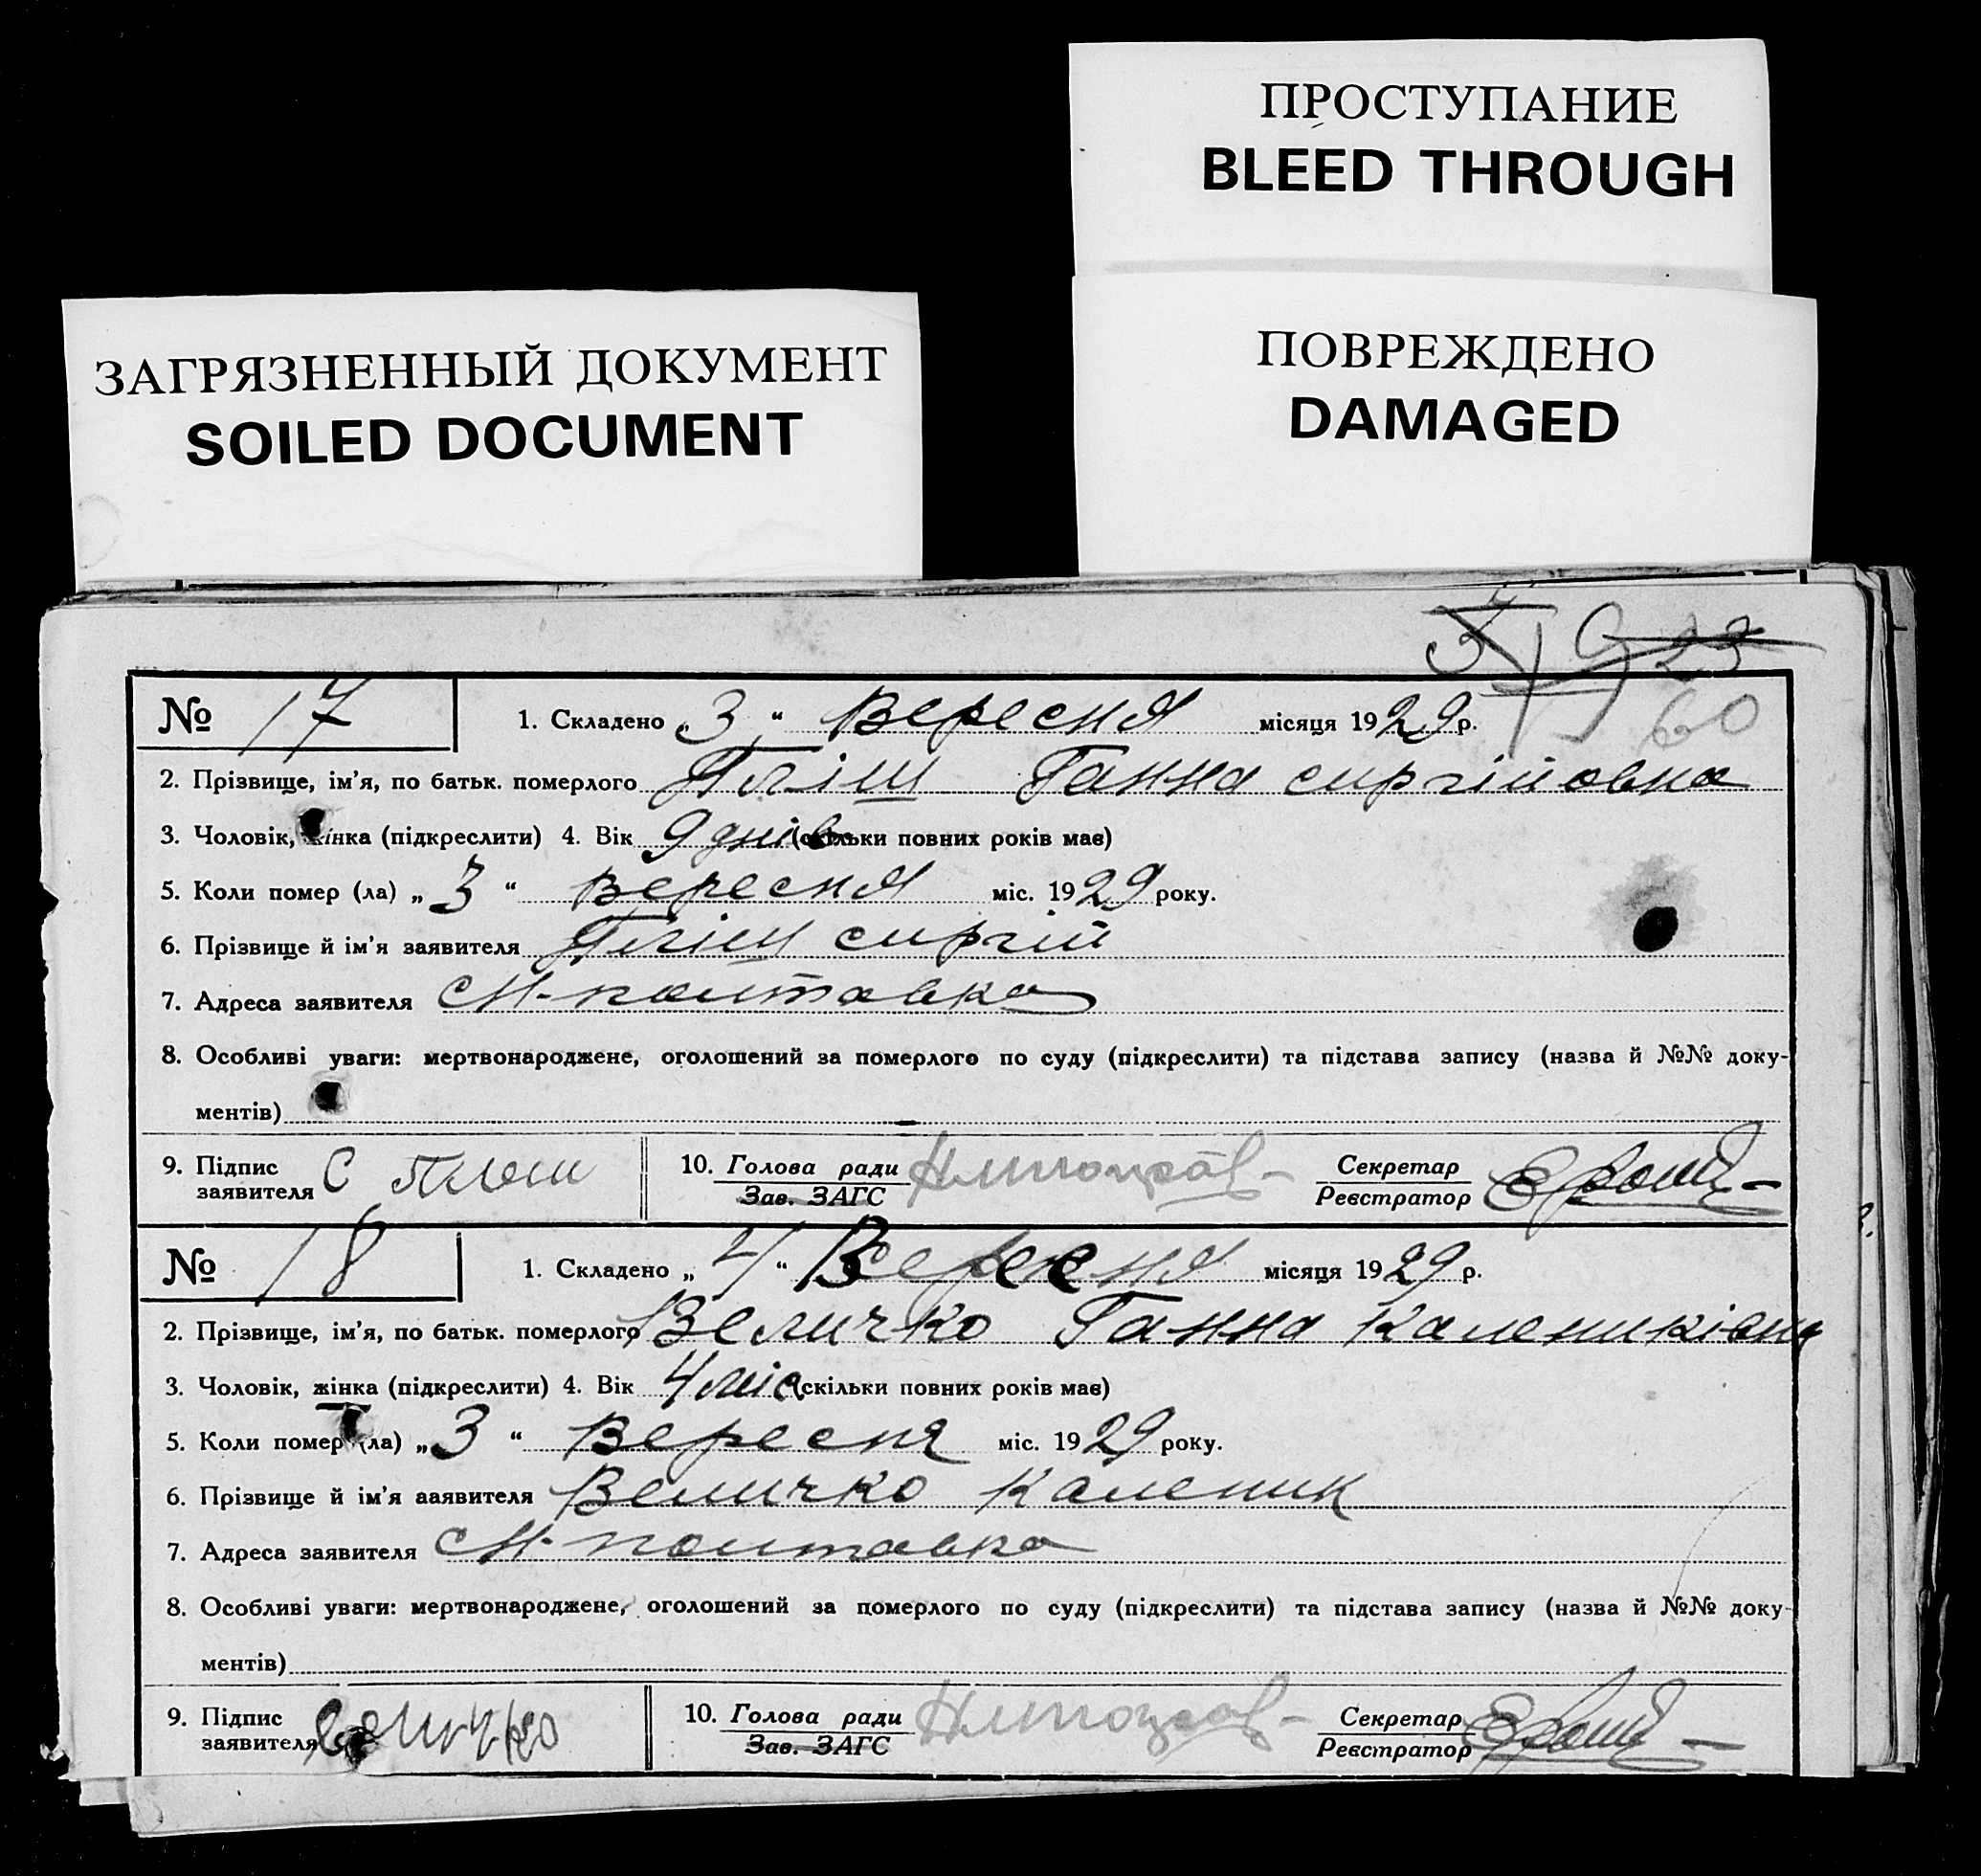 ПРОСТУПАНИЕ
BLEED THROUGH
ЗАГРЯЗНЕННЫЙ ДОКУМЕНТ
SOILED DOCUMENT
ПОВРЕЖДЕНО
DAMAGED
23
60
№ 17 1. Складено „3“ Вересня місяця 1929 р.
2. Прізвище, ім'я, по батьк. померлого Пліш Ганна сиргійовна
3. Чоловік, жінка (підкреслити) 4. Вік 9 днів (скільки повних років має)
5. Коли помер (ла) „3“ Вересня міс. 1929 року.
6. Прізвище й ім'я заявителя Пліш сиргій
7. Адреса заявителя М-полтавка
8. Особливі уваги: мертвонароджене, оголошений за померлого по суду (підкреслити) та підстава запису (назва й №№ доку-
ментів)
9. Підпис заявителя С Плош 10. Голова ради Зав. ЗАГС Секретар Реєстратор
№ 18 1. Складено „4“ Вересня місяця 1929 р.
2. Прізвище, ім'я, по батьк. померлого Величко Ганна Калениківна
3. Чоловік, жінка (підкреслити) 4. Вік 4 міс (скільки повних років має)
5. Коли помер (ла) „3“ Вересня міс. 1929 року.
6. Прізвище й ім'я заявителя Величко Каленик
7. Адреса заявителя М-полтавка
8. Особливі уваги: мертвонароджене, оголошений за померлого по суду (підкреслити) та підстава запису (назва й №№ доку-
ментів)
9. Підпис заявителя Величко 10. Голова ради Зав. ЗАГС Секретар Реєстратор